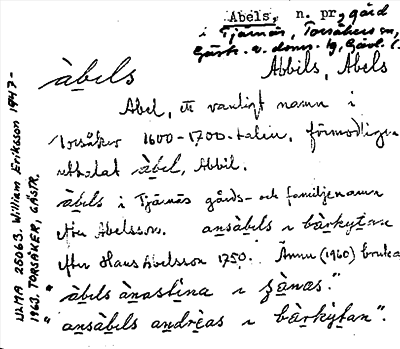 Abels, n. pr, gård
i Tjärnäs, Torsåkers sn,
Gästr. v. doms. tg, Gävl. l.
Abbils, Abels
àbels
Abel, ett vanligt namn i
Torsåker 1600-1700-talen, förmodligen
uttalat àbel, Abbil.
àbels i Tjärnäs gårds- och familjenamn
efter Abelsson. ansàbels i bàrkytan
efter Hans Abelsson 1750. Ännu (1960) bruka
"àbels ànastina i zànas."
"ansàbels andrèas i bàrkỳtan".
ULMA 25063. William Eriksson 1947-
1963. TORSÅKER, GÄSTR.